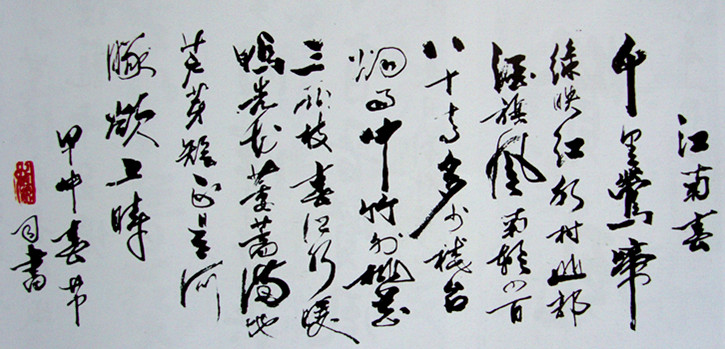 江南春
千里鶯啼
綠映紅水村山郭
酒旗風南朝四百
八十寺多少樓台
烟雨中竹外桃花
三兩枝春江水暖
鴨先知蔞蒿滿地
芦芽短正是河
豚欲上時
甲申春节
書